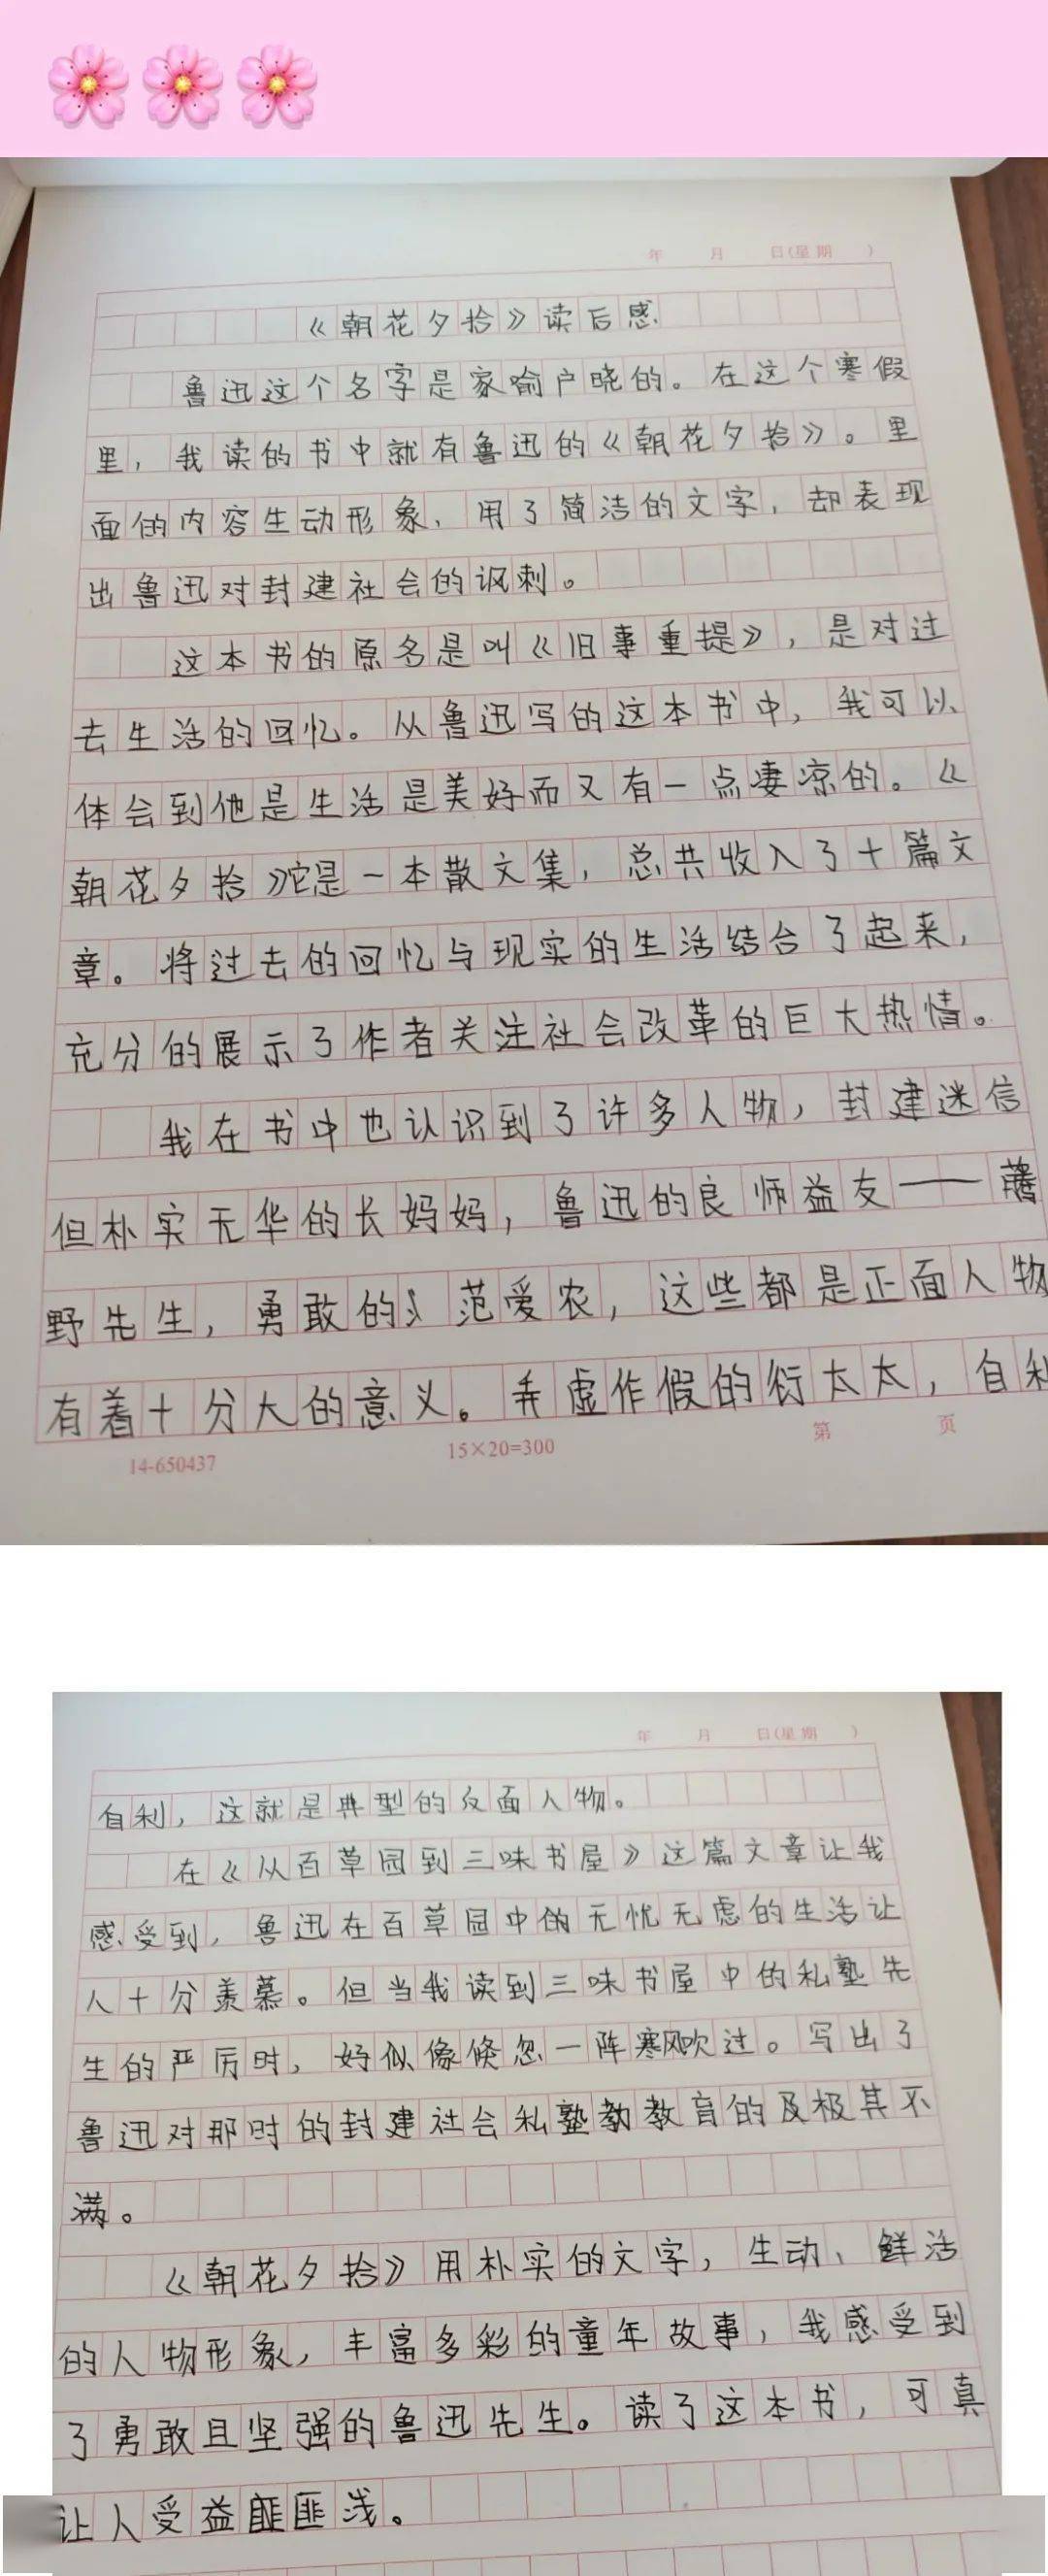 年 月 日(星期 )
《朝花夕拾》读后感
鲁迅这个名字是家喻户晓的。在这个寒假
里，我读的书中就有鲁迅的《朝花夕拾》。里
面的内容生动形象，用了简洁的文字，却表现
出鲁迅对封建社会的讽刺。
这本书的原名是叫《旧事重提》，是对过
去生活的回忆。从鲁迅写的这本书中，我可以
体会到他是生活是美好而又有一点凄凉的。《
朝花夕拾》它是一本散文集，总共收入了十篇文
章。将过去的回忆与现实的生活结合了起来，
充分的展示了作者关注社会改革的巨大热情。
我在书中也认识到了许多人物，封建迷信
但朴实无华的长妈妈，鲁迅的良师益友——藤
野先生，勇敢的范爱农，这些都是正面人物
有着十分大的意义。弄虚作假的衍太太，自私
14-650437 15×20=300 第 页
年 月 日(星期 )
自利，这就是典型的反面人物。
在《从百草园到三味书屋》这篇文章让我
感受到，鲁迅在百草园中的无忧无虑的生活让
人十分羡慕。但当我读到三味书屋中的私塾先
生的严厉时，好似像倏忽一阵寒风吹过。写出了
鲁迅对那时的封建社会私塾教教育的及极其不
满。
《朝花夕拾》用朴实的文字，生动、鲜活
的人物形象，丰富多彩的童年故事，我感受到
了勇敢且坚强的鲁迅先生。读了这本书，可真
让人受益匪匪浅。